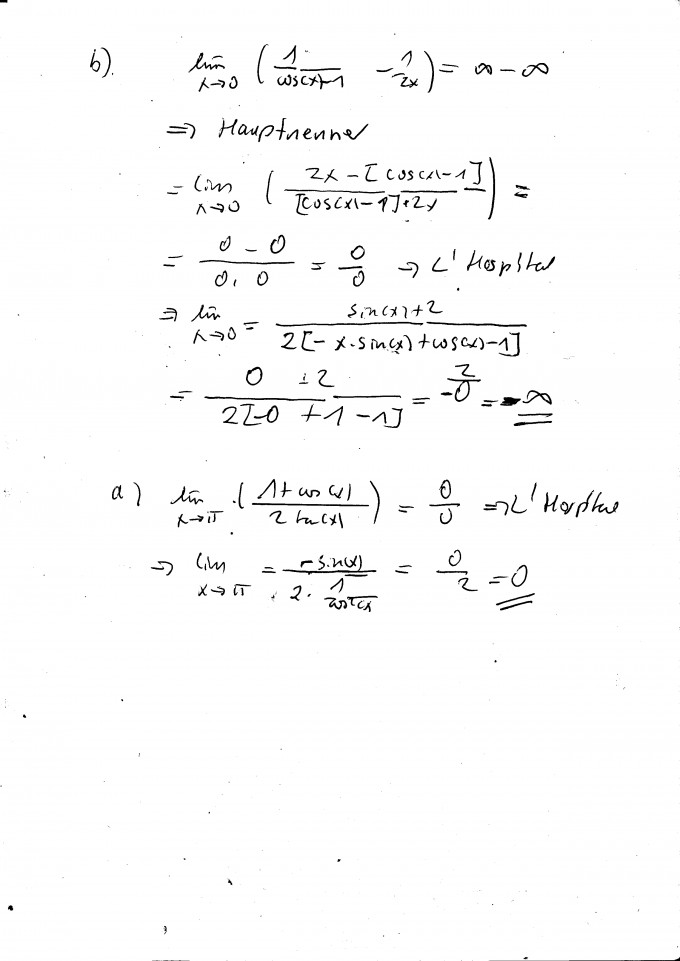 b). lim x→0 ( 1/(cos(x)-1) - 1/2x ) = ∞ - ∞
⇒ Hauptnenner
= lim x→0 ( (2x - [cos(x)-1]) / ([cos(x)-1]·2x) ) =
= (0 - 0)/(0 · 0) = 0/0 → L' Hospital
⇒ lim x→0 = (sin(x)+2) / (2[-x·sin(x)+cos(x)-1])
= (0 + 2)/(2[-0 + 1 - 1]) = 2/-0 = -∞
a) lim x→π · ( (1 + cos(x)) / (2 tan(x)) ) = 0/0 ⇒ L' Hospital
⇒ lim x→π = (-sin(x)) / (2 · 1/cos²(x)) = 0/2 = 0